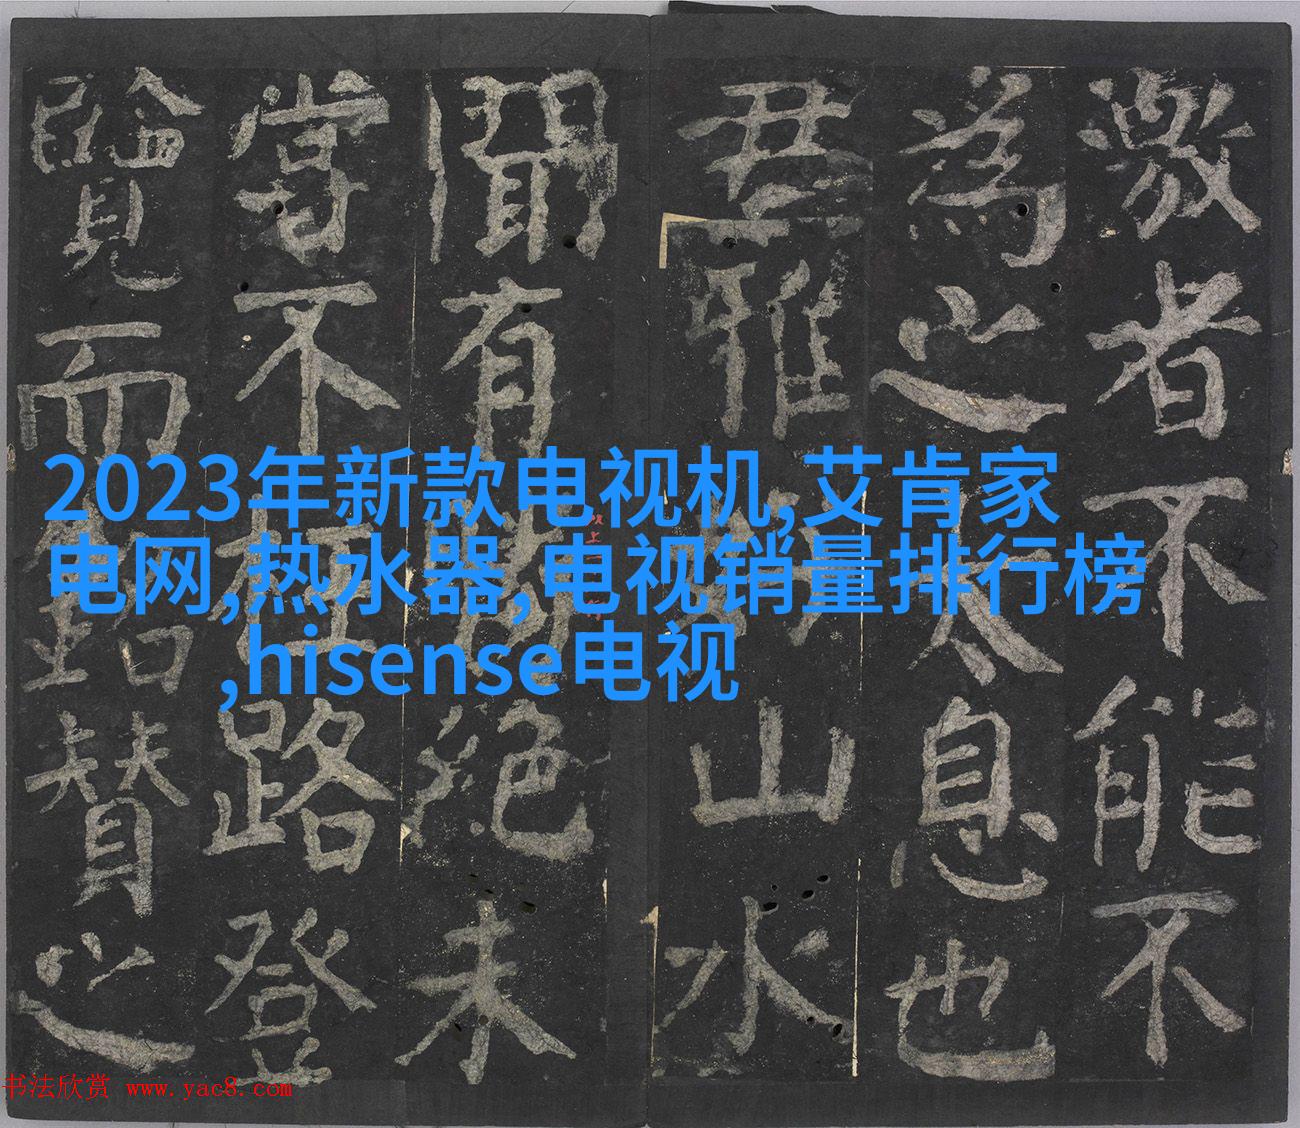 2023年新款电视机,艾肯家
电网,热水器,电视销量排行榜
,hisense电视
激者不能不
為之太息也
君雅山水
聞有絕未
嘗不枉路登
覽而銘贊之
书法欣赏 www.yac8.com